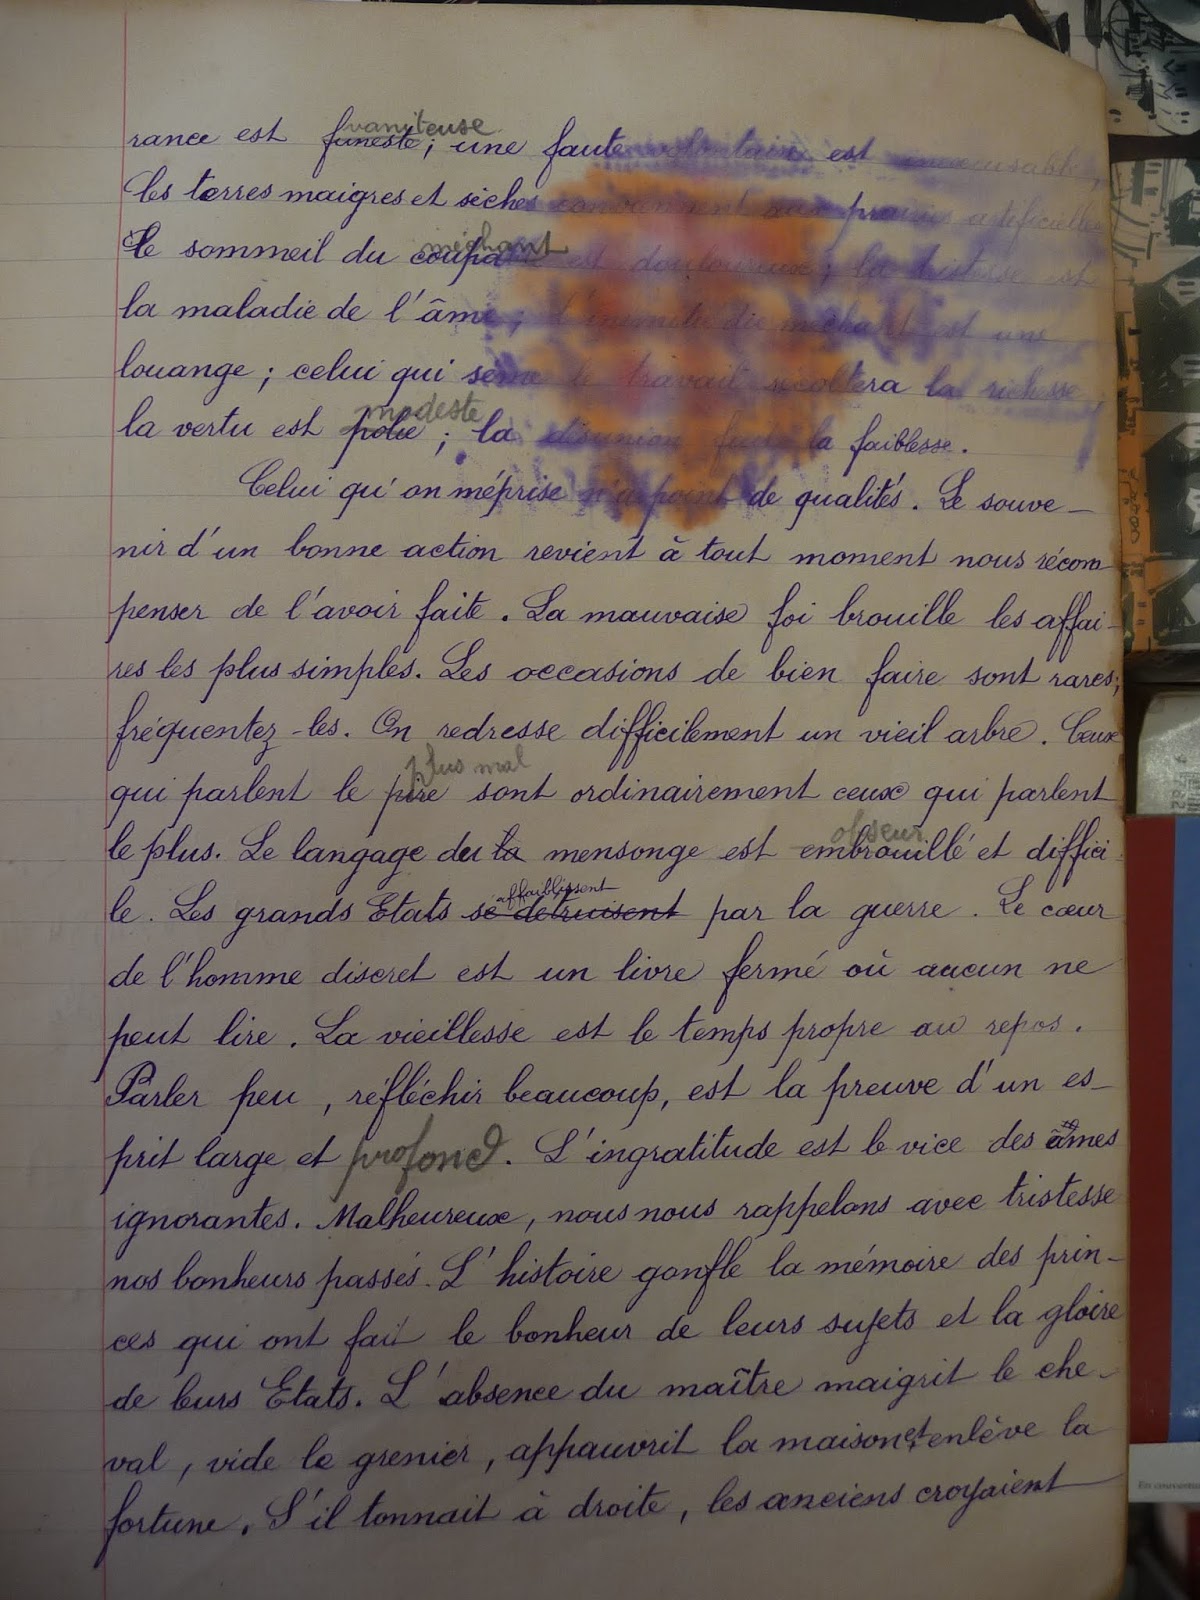 rance est funeste vaniteuse ; une faute volontaire est inexcusable,
les terres maigres et sèches conviennent aux prairies artificielles
Le sommeil du coupable méchant est douloureux ; la tristesse est
la maladie de l'âme ; méchant est une
louange ; celui qui sème le travail récoltera la richesse,
la vertu est polie modeste ; la désunion fait la faiblesse.
Celui qu'on méprise n'a point de qualités. Le souve-
nir d'un bonne action revient à tout moment nous récom
penser de l'avoir faite. La mauvaise foi brouille les affai-
res les plus simples. Les occasions de bien faire sont rares;
fréquentez-les. On redresse difficilement un vieil arbre. Ceux
qui parlent le pire plus mal sont ordinairement ceux qui parlent
le plus. Le langage du la mensonge est embrouillé obscur et diffici
le. Les grands Etats se detruisent affaiblissent par la guerre. Le cœur
de l'homme discret est un livre fermé où aucun ne
peut lire. La vieillesse est le temps propre au repos.
Parler peu, réfléchir beaucoup, est la preuve d'un es-
prit large et profond. L'ingratitude est le vice des âmes
ignorantes. Malheureux, nous nous rappelons avec tristesse
nos bonheurs passés. L'histoire gonfle la mémoire des prin-
ces qui ont fait le bonheur de leurs sujets et la gloire
de leurs Etats. L'absence du maître maigrit le che-
val, vide le grenier, appauvrit la maison et enlève la
fortune. S'il tonnait à droite, les anciens croyaient